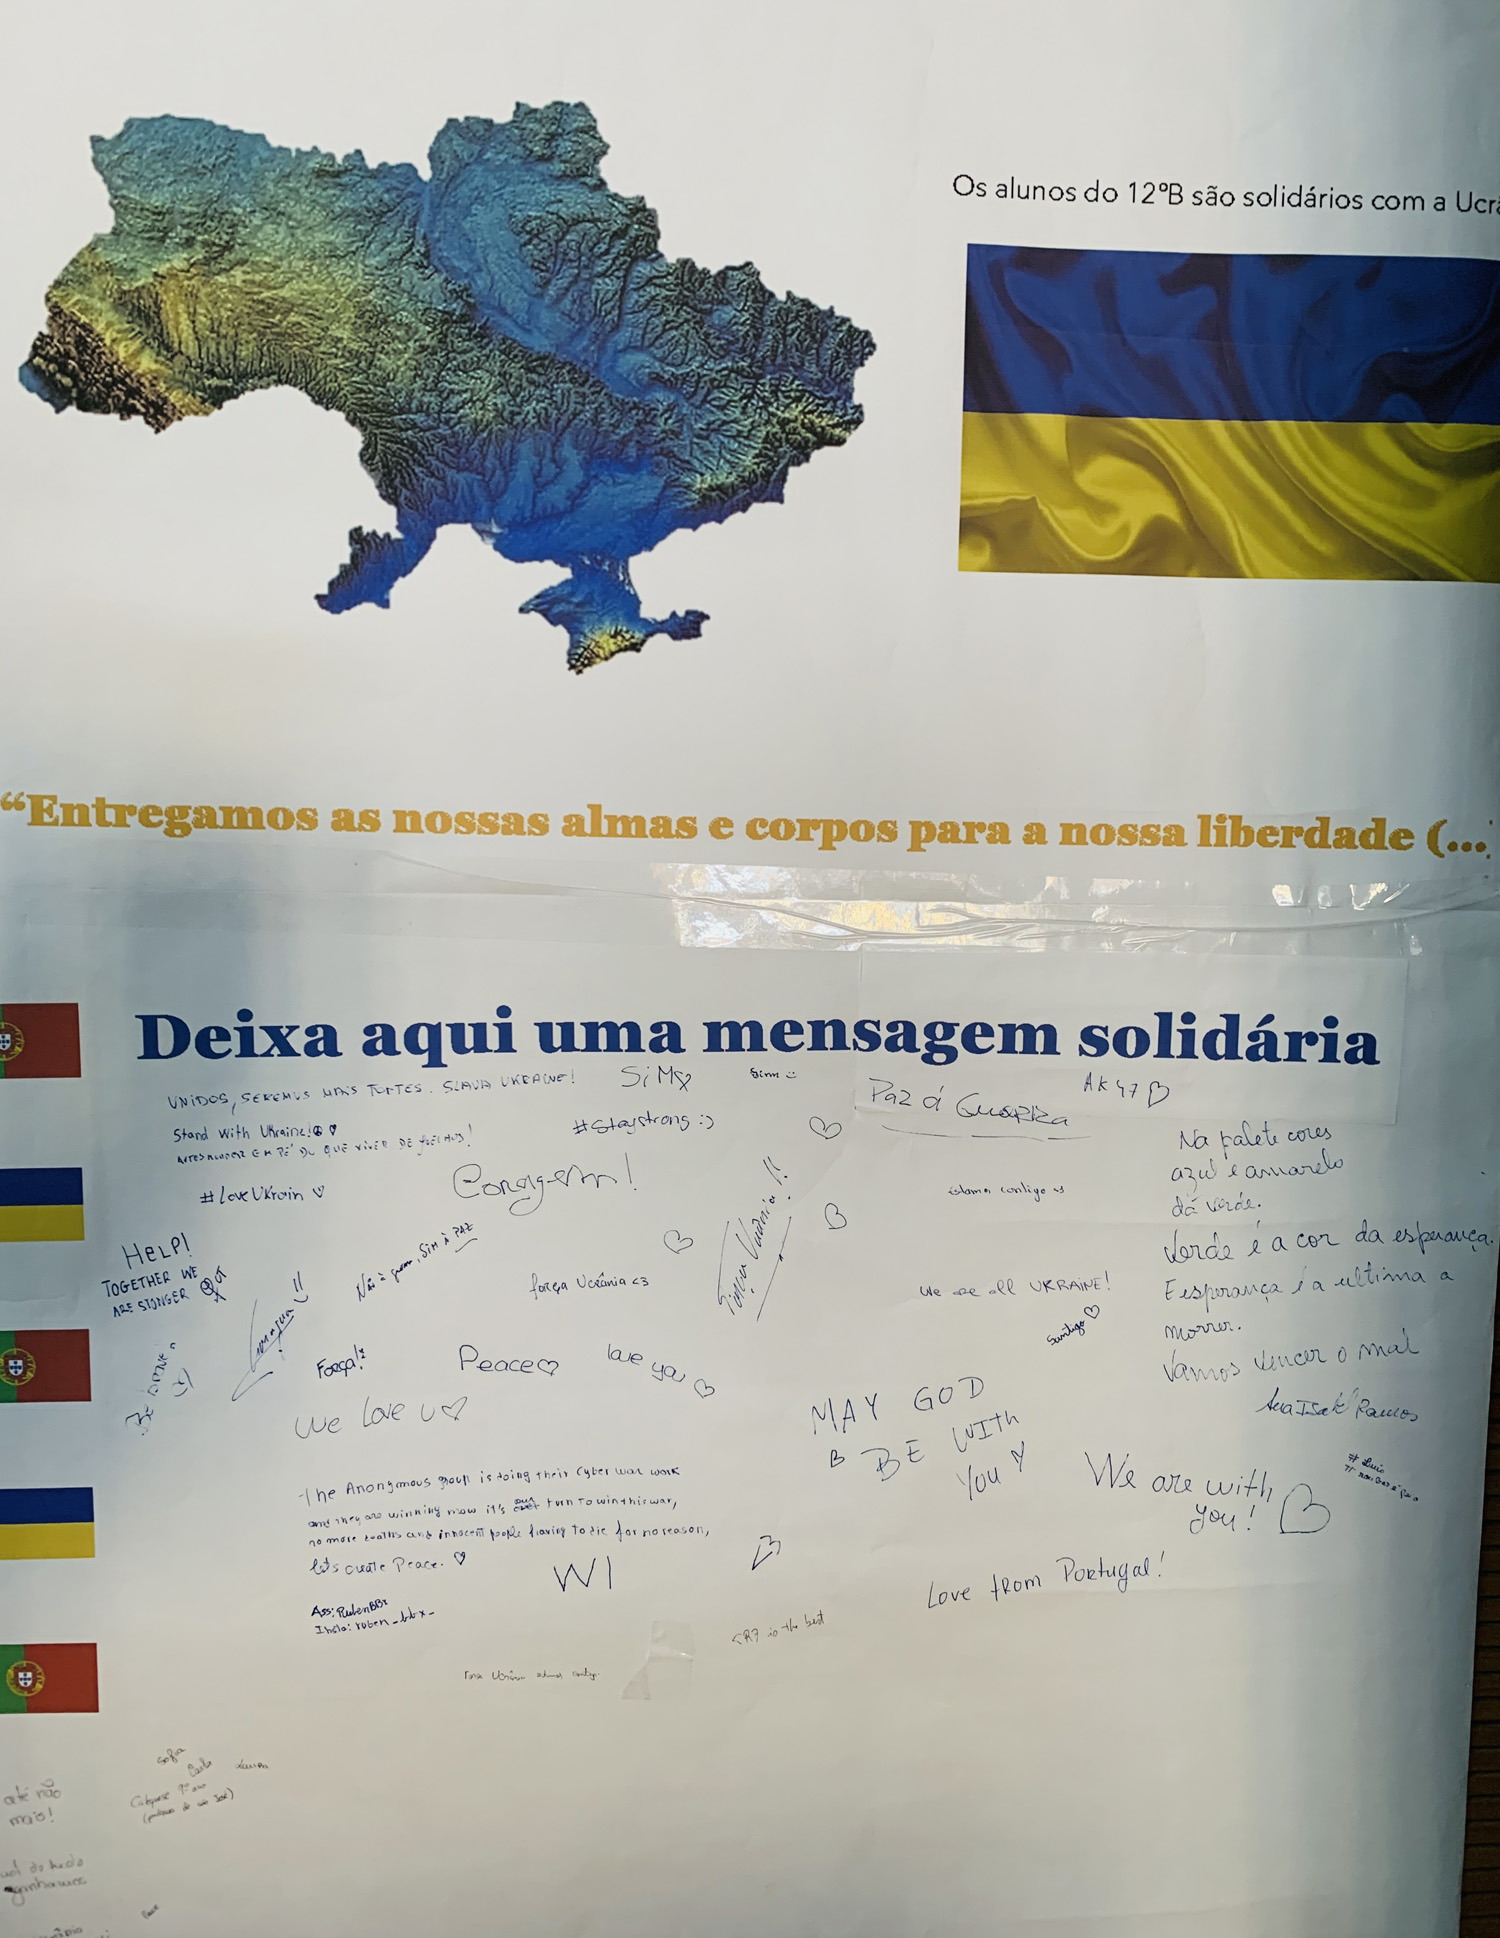 Os alunos do 12ºB são solidários com a Ucrâ
“Entregamos as nossas almas e corpos para a nossa liberdade (...
Deixa aqui uma mensagem solidária
UNIDOS, SEREMOS MAIS FORTES. SLAVA UKRAINE!
SiM
Simm
AK47
Paz á Guerra
Stand with Ukraine!
#Staystrong :)
ANTES MORRER EM PÉ DO QUE VIVER DE JOELHOS!
#LoveUkrain
Coragem!
Na palete cores
azul e amarelo
dá verde.
Verde é a cor da esperança.
E esperança é a ultima a
morrer.
Vamos vencer o mal
Ramos
HELP!
TOGETHER WE
ARE STONGER
Não à guerra, Sim à PAZ
força Ucrânia <3
Força Ucrânia!!
contigo <3
We are all UKRAINE!
Santiago
BE BRAVE
Coragem!!
Força!
Peace
love you
We Love U
MAY GOD
BE WITH
YOU
We are with
you!
# Luis
The Anonymous group is doing their Cyber war work
and they are winning now it's our turn to win this war,
no more deaths and innocent people having to die for no reason,
let's create Peace.
Ass: RubenBBx
Insta: ruben_bbx_
WI
Love from Portugal!
CR7 is the best
Sofia
até não
mais!
ganharmos